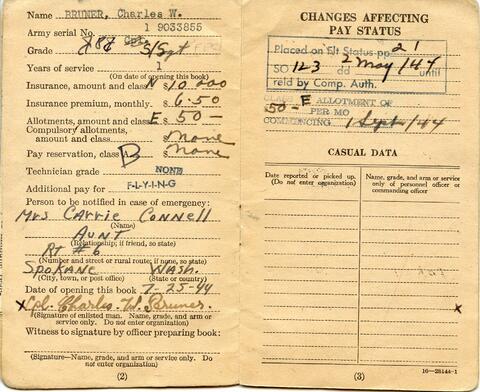 Name BRUNER, Charles W.
Army serial No. 1 9033855
Grade S/Sgt
Years of service 1
(On date of opening this book)
Insurance, amount and class N 10,000
Insurance premium, monthly. 6.50
Allotments, amount and class E 50 —
Compulsory allotments,
amount and class None
Pay reservation, class A B None
Technician grade NONE
Additional pay for F-L-Y-I-N-G
Person to be notified in case of emergency:
Mrs Carrie Connell
(Name)
Aunt
(Relationship; if friend, so state)
RT #6
(Number and street or rural route; if none, so state)
Spokane Wash.
(City, town, or post office) (State)
Date of opening this book 7-25-44
x Cpl. Charles W. Bruner.
(Signature of enlisted man. Name, grade, and arm or
service only. Do not enter organization)
Witness to signature by officer preparing book:
(Signature—Name, grade, and arm or service only. Do
not enter organization)
(2)
CHANGES AFFECTING
PAY STATUS
Placed on Flt Status pp 21
SO 123 dd 2 May/44 until
reld by Comp. Auth.
50 - E ALLOTMENT OF
PER MO
COMMENCING 1 Sept/44
CASUAL DATA
Date reported or picked up.
(Do not enter organization)
Name, grade, and arm or service
only of personnel officer or
commanding officer
x
(3)
16—28144-1